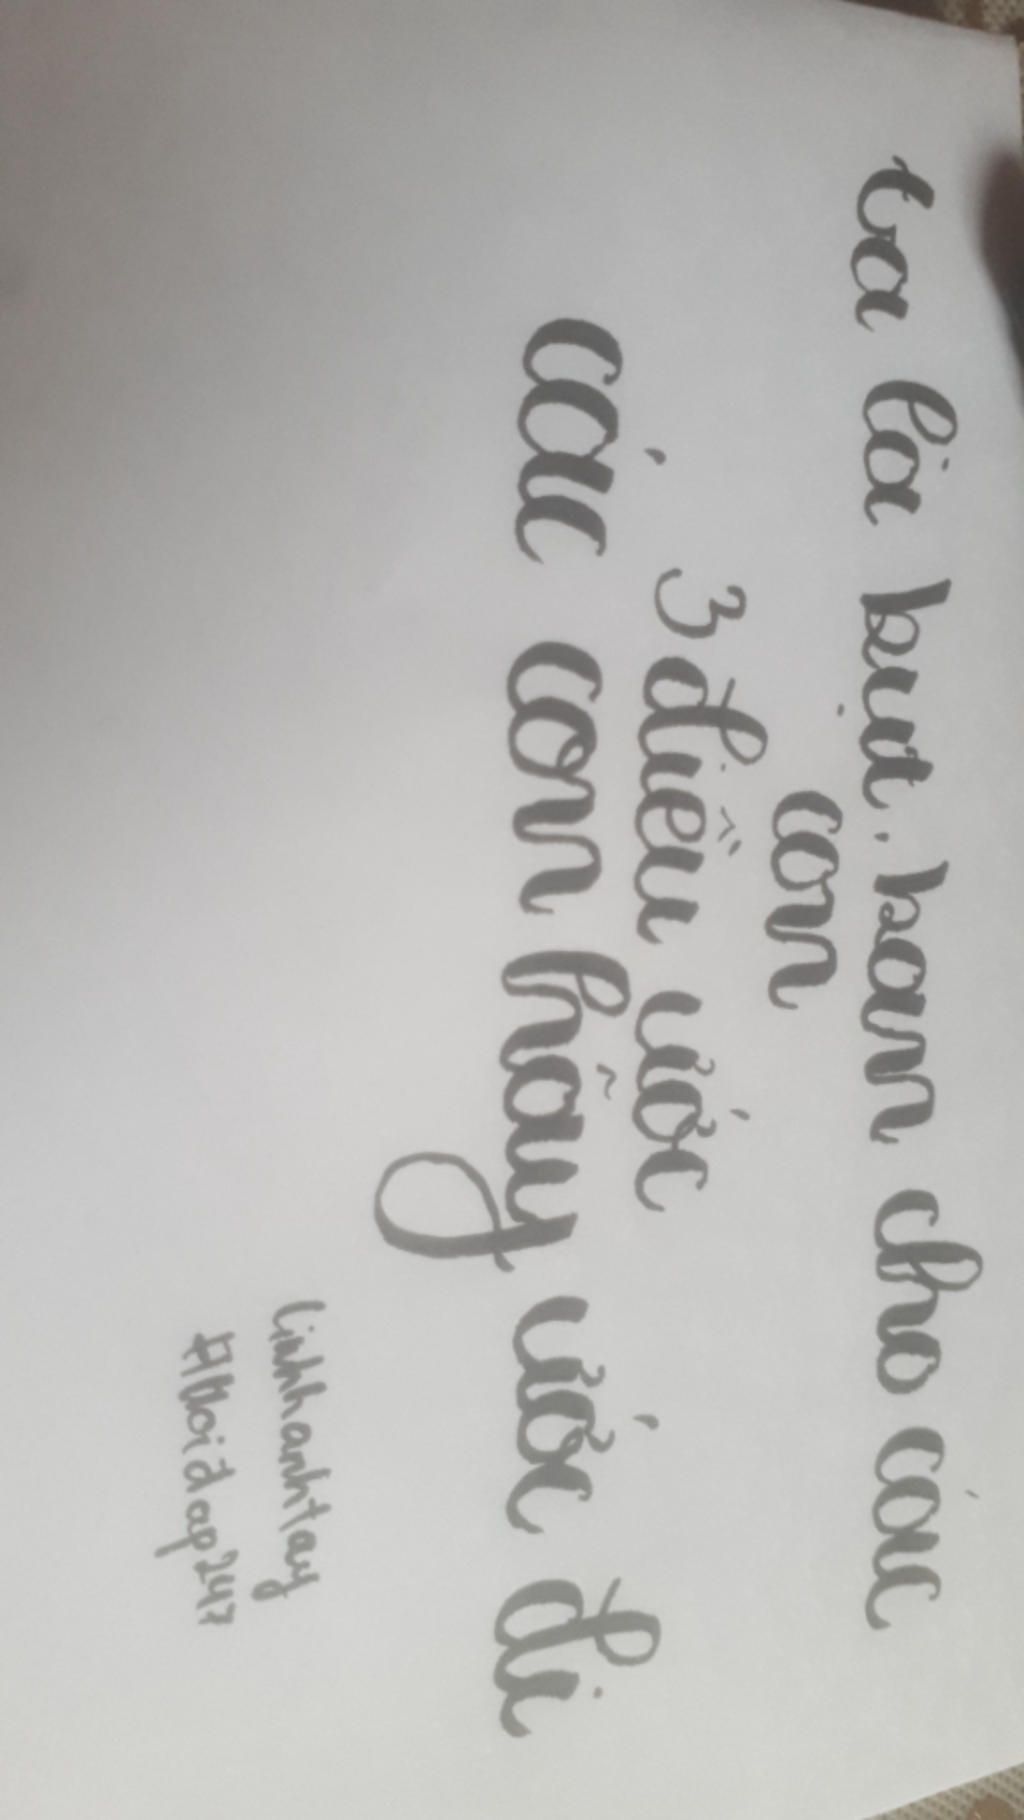 ta là bụt. ban cho các
con
3 điều ước
các con hãy ước đi
linhhanhtay
#hoidap247